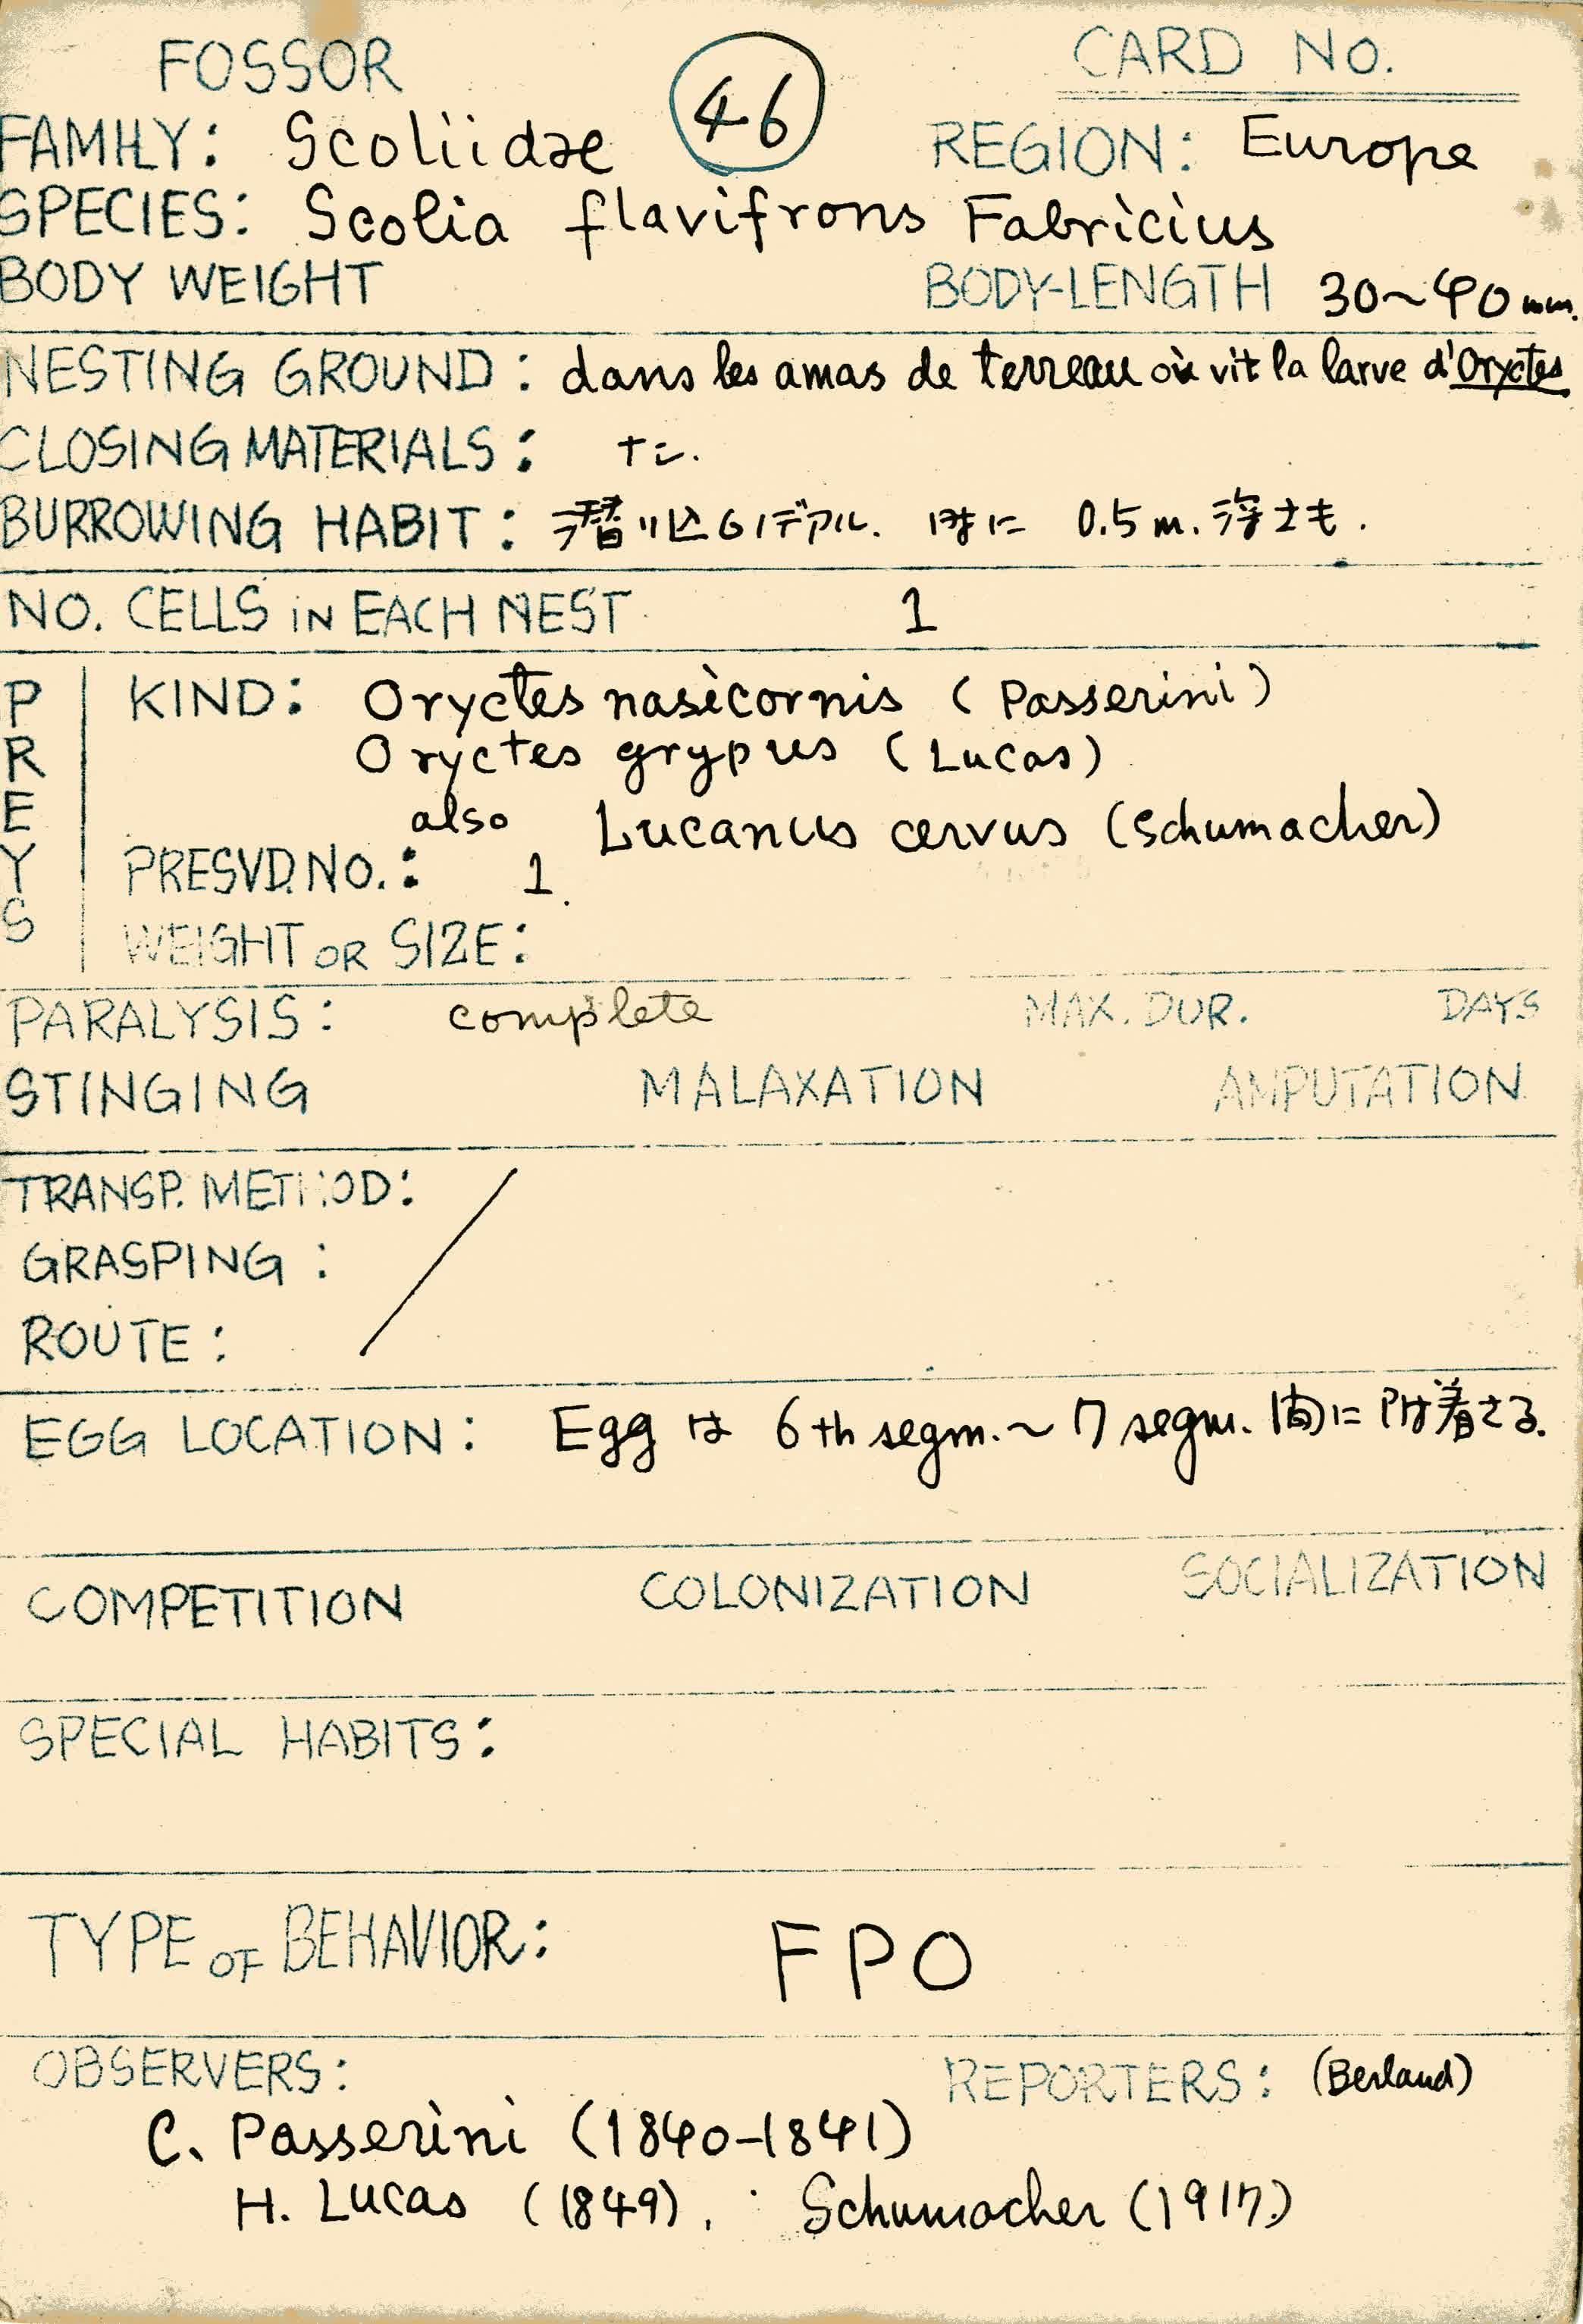 FOSSOR
46
CARD NO.
FAMILY: Scoliidae
REGION: Europe
SPECIES: Scolia flavifrons Fabricius
BODY WEIGHT
BODY-LENGTH 30~40 mm.
NESTING GROUND: dans les amas de terreau où vit la larve d'Oryctes
CLOSING MATERIALS: ナシ.
BURROWING HABIT: 潜リ込ム デアル. 時に 0.5 m. 深さも.
NO. CELLS IN EACH NEST 1
PREYS
KIND: Oryctes nasicornis (Passerini)
Oryctes grypus (Lucas)
also Lucanus cervus (Schumacher)
PRESVD. NO.: 1.
WEIGHT OR SIZE:
PARALYSIS: complete MAX. DUR. DAYS
STINGING MALAXATION AMPUTATION
TRANSP. METHOD:
GRASPING:
ROUTE:
EGG LOCATION: Egg は 6th segm.~7 segm. 間に附着さる.
COMPETITION COLONIZATION SOCIALIZATION
SPECIAL HABITS:
TYPE OF BEHAVIOR: FPO
OBSERVERS:
REPORTERS: (Berland)
C. Passerini (1840-1841)
H. Lucas (1849). Schumacher (1917)